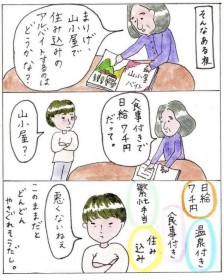 そんなある夜
まげ!
山小屋で
住み込みの
アルバイトするのは
どうかな?
山小屋
バイト
食事付きで
日給7千円
だって。
山小屋?
日給
7千円
温泉付き
食事付き
住み
込み
悪くないねぇ
このままだと
どんどん
やさぐれそうだし。